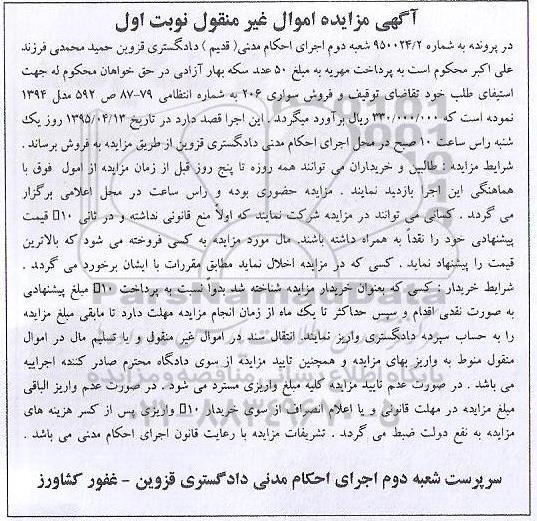 آگهی مزایده اموال غیر منقول نوبت اول
در پرونده به شماره ۹۵۰۰۲۴/۲ شعبه دوم اجرای احکام مدنی( قدیم ) دادگستری قزوین حمید محمدی فرزند
علی اکبر محکوم است به پرداخت مهریه به مبلغ ۵۰ عدد سکه بهار آزادی در حق خواهان محکوم له جهت
استیفای طلب خود تقاضای توقیف و فروش سواری ۲۰۶ به شماره انتظامی ۷۹-۸۷ ص ۵۹۲ مدل ۱۳۹۴
نموده است که ۳۳۰/۰۰۰/۰۰۰ ریال برآورد میگردد . این اجرا قصد دارد در تاریخ ۱۳۹۵/۰۴/۱۳ روز یک
شنبه راس ساعت ۱۰ صبح در محل اجرای احکام مدنی دادگستری قزوین از طریق مزایده به فروش برساند .
شرایط مزایده : طالبین و خریداران می توانند همه روزه تا پنج روز قبل از زمان مزایده از امول فوق با
هماهنگی این اجرا بازدید نمایند . مزایده حضوری بوده و راس ساعت در محل اعلامی برگزار
می گردد . کسانی می توانند در مزایده شرکت نمایند که اولاً منع قانونی نداشته و در ثانی ۱۰▯ قیمت
پیشنهادی خود را نقداً به همراه داشته باشند. مال مورد مزایده به کسی فروخته می شود که بالاترین
قیمت را پیشنهاد نماید . کسی که در مزایده اخلال نماید مطابق مقررات با ایشان برخورد می گردد .
شرایط خریدار : کسی که بعنوان خریدار مزایده شناخته شد بدواً نسبت به پرداخت ۱۰▯ مبلغ پیشنهادی
به صورت نقدی اقدام و سپس حداکثر تا یک ماه از زمان انجام مزایده مهلت دارد تا مابقی مبلغ مزایده
را به حساب سپرده دادگستری واریز نمایند. انتقال سند در اموال غیر منقول و یا تسلیم مال در اموال
منقول منوط به واریز بهای مزایده و همچنین تایید مزایده از سوی دادگاه محترم صادر کننده اجراییه
می باشد . در صورت عدم تایید مزایده کلیه مبلغ واریزی مسترد می شود . در صورت عدم واریز الباقی
مبلغ مزایده در مهلت قانونی و یا اعلام انصراف از سوی خریدار ۱۰▯ واریزی پس از کسر هزینه های
مزایده به نفع دولت ضبط می گردد . تشریفات مزایده با رعایت قانون اجرای احکام مدنی می باشد .
سرپرست شعبه دوم اجرای احکام مدنی دادگستری قزوین - غفور کشاورز
ParsNamadData
پایگاه اطلاع رسانی مناقصه و مزایده
۰۲۱-۸۸۳۴۹۶۷۰-۵